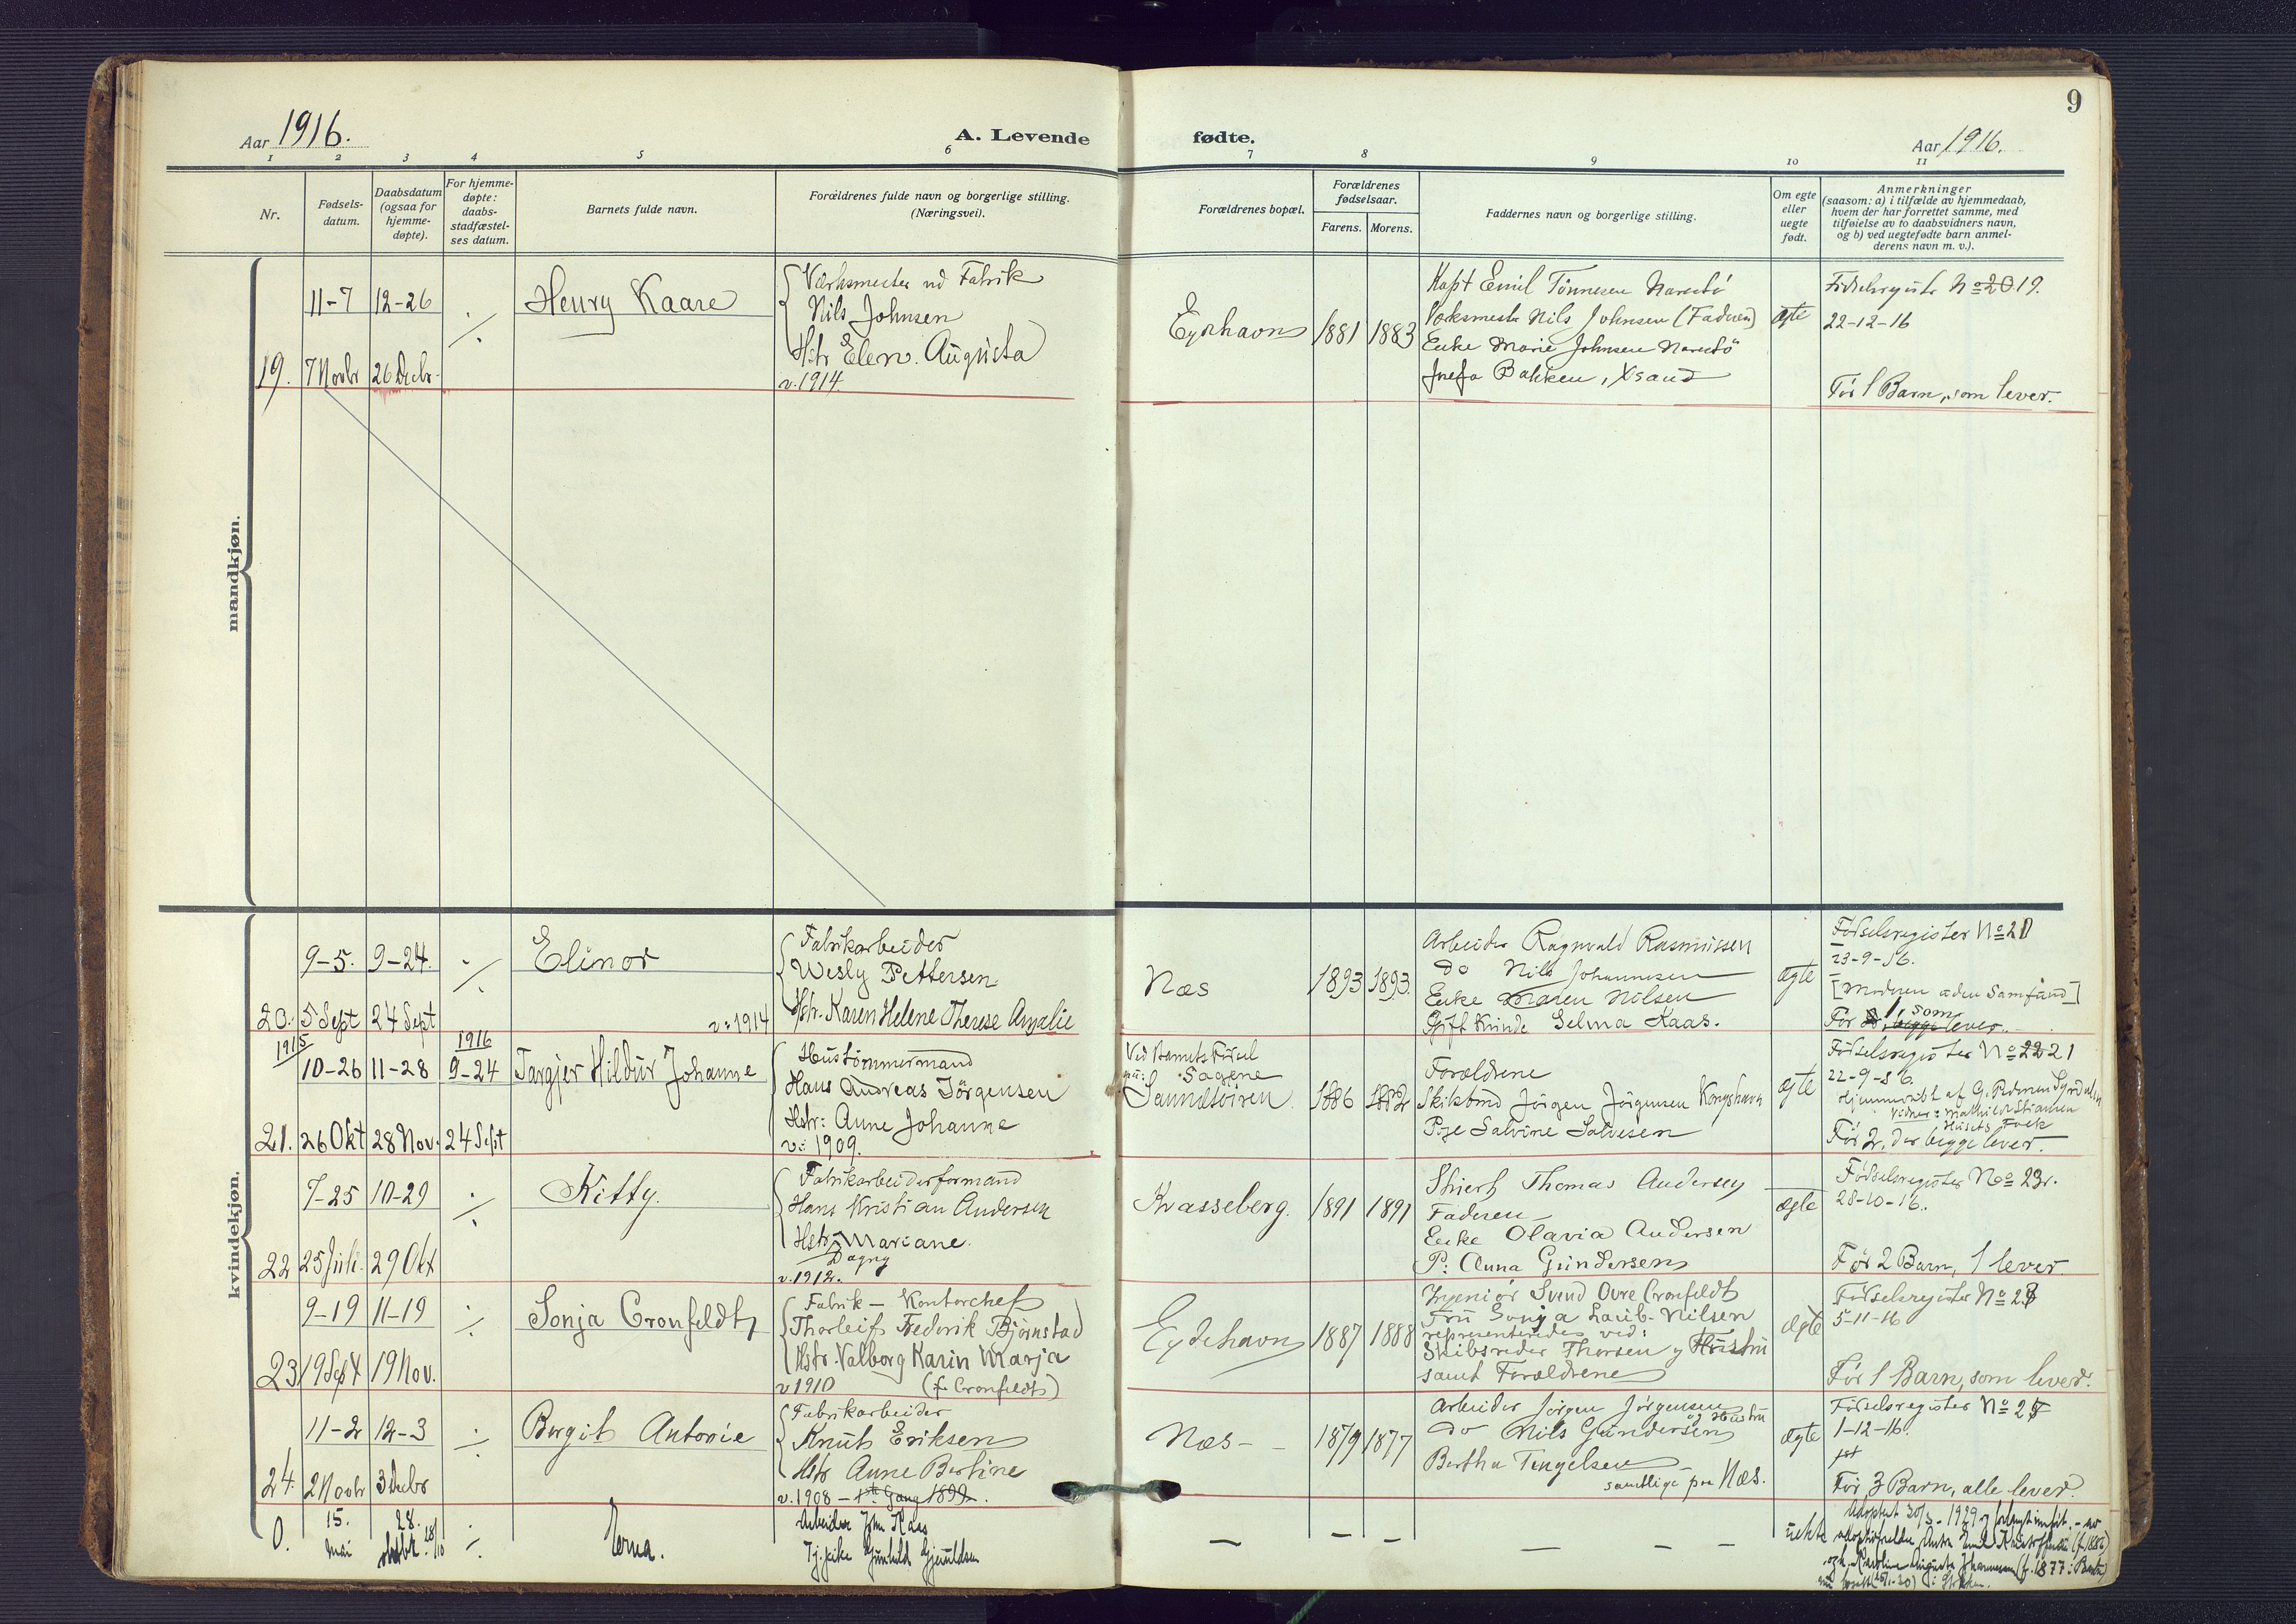 9
Aar 1916.
A. Levende
fødte.
Aar 1916.
1 2 3 4 5 6 7 8 9 10 11
Nr.
Fødsels-
datum.
Daabsdatum
(ogsaa for
hjemme-
døpte).
For hjemme-
døpte:
daabs-
stadfæstel-
ses datum.
Barnets fulde navn.
Forældrenes fulde navn og borgerlige stilling.
(Næringsvei).
Forældrenes bopæl.
Forældrenes
fødselsaar.
Farens. Morens.
Faddernes navn og borgerlige stilling.
Om egte
eller
uegte
født.
Anmerkninger
(saasom: a) i tilfælde av hjemmedaab,
hvem der har forrettet samme, med
tilføielse av to daabsvidners navn,
og b) ved uegtefødte barn anmel-
derens navn m. v.).
mandkjøn.
19.
11-7
7 Novbr
12-26
26 Decbr.
./.
Henry Kaare
Værksmester ved Fabrik
Nils Johnsen
Hstr Elen Augusta
v. 1914
Eydehavn
1881
1883
Kapt Emil Tönnesen Narestö
Værksmestr Nils Johnsen (Faderen)
Enke Marie Johnsen Narestö
Bakken, Xsand
ægte
Födselsregistr No 20 19.
22-12-16
Før 1 Barn, som lever.
kvindekjøn.
20.
9-5.
5 Sept
9-24.
24 Sept
./.
Elinor
v: 1914
Fabrikarbeider
Wesly Pettersen
Hstr. Karen Helene Therese Amalie
Næs
1893
1893.
Arbeider Ragnvald Rasmussen
do Nils Johannesen
Enke Maren Nilsen
Gift Kvinde Selma Kaas.
ægte
Födselsregister No 20
23-9-16.
[Moderen aden Samfund]
Før 1, som lever.
21.
1915
10-26
26 Okt
11-28
28 Nov.
1916
9-24
24 Sept
Targjer Hildur Johanne
Hustömmermand
Hans Andreas Jörgensen
Hstr: Anne Johanne
v: 1909.
Ved Barnets Födsel
Sagene
Sannetöiren
1886
1882
Forældrene
Skibstmd Jörgen Jörgensen Kongshavn
Pige Salvine Salvesen
ægte
Födselsregister No 22 21
22-9-16.
Hjemmedøbt af G. Pedersen
Vidner: Mathilde Stiansen
Husets Folk
Før 2, der begge lever.
22
7-25
25 Juli.
10-29
29 Okt
./.
Kitty.
Fabrikarbeiderformand
Hans Kristian Andersen
Hstr. Mariane
Dagny
v. 1912.
Kvasseberg.
1891
1891
Thomas Andersen
Faderen
Enke Olavia Andersen
P: Anna Gundersen
ægte
Födselsregister No 22.
28-10-16.
Før 2 Barn, 1 lever
23
9-19
19 Sept
11-19
19 Nov.
./.
Sonja Cronfeldt
Fabrik - Kontorchef
Thorleif Frederik Björnstad
Hstr. Valborg Karin Marja
v 1910 (f. Cronfeldt)
Eydehavn
1887
1888
Ingeniör Svend Ovre Cronfeldt
Fru Sonja Laub-Nilsen
representeredes ved:
Skibsreder Thorsen og Hustru
samt Forældrene
ægte
Födselsregister No 23
5-11-16
Før 1 Barn, som lever.
24.
11-2
2 Novbr
12-3
3 Decbr
./.
Borgit Antonie
Fabrikarbeider
Knut Eriksen
Hstr Anne Bertine
v. 1908 - 1ste Gang 1899.
Næs -
1879
1877
Arbeider Jörgen Jörgensen
og Hustru
do Nils Gundersen
Bertha Tengelsen
samtlige paa Næs.
ægte
Födselsregister No 24
1-12-16.
Før 3 Barn, alle lever.
0.
15.
mai
28.
oktbr. 28/10
./.
Erna.
Arbeider John Kaas
Tj.pike Gunhild Gjeruldsen
— — — — — —
uekte
Adoptert 30/3 - 1929